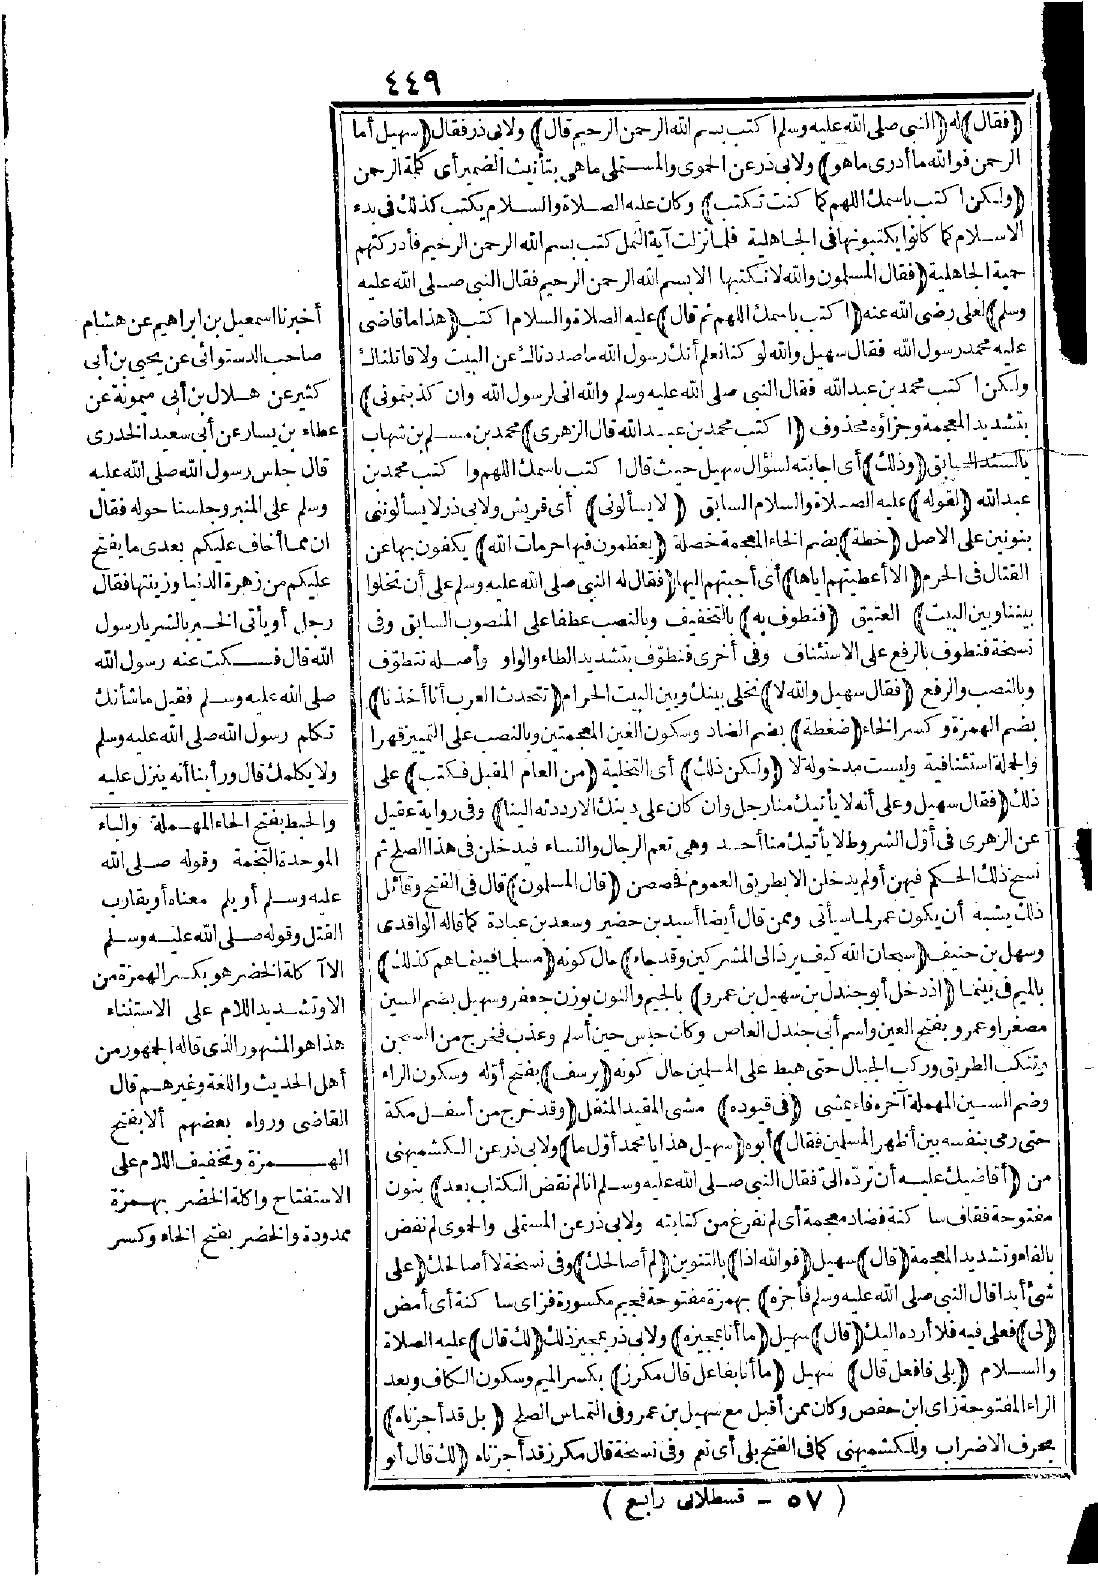 ٤٤٩
(فقال) له (النبي صلى الله عليه وسلم اكتب بسم الله الرحمن الرحيم قال) ولابى ذر فقال (سهيل أما
الرحمن فوالله ما أدرى ما هو) ولابى ذر عن الحموى والمستملى ما هى بتأنيث الضمير أى كلمة الرحمن
(ولكن اكتب باسمك اللهم كما كنت تكتب) وكان عليه الصلاة والسلام يكتب كذلك فى بدء
الاسلام كما كانوا يكتبونها فى الجاهلية فلما نزلت آية النمل كتب بسم الله الرحمن الرحيم فأدركتهم
حمية الجاهلية (فقال المسلمون والله لا نكتبها الا بسم الله الرحمن الرحيم فقال النبي صلى الله عليه
وسلم) لعلى رضى الله عنه (اكتب باسمك اللهم ثم قال) عليه الصلاة والسلام اكتب (هذا ما قاضى
عليه محمد رسول الله فقال سهيل والله لو كنا نعلم أنك رسول الله ما صددناك عن البيت ولا قاتلناك
ولكن اكتب محمد بن عبد الله فقال النبي صلى الله عليه وسلم والله انى لرسول الله وان كذبتمونى)
بتشديد المعجمة وجزاؤه محذوف (اكتب محمد بن عبد الله قال الزهرى) محمد بن مسلم بن شهاب
بالسند السابق (وذلك) أى اجابته لسؤال سهيل حيث قال اكتب باسمك اللهم واكتب محمد بن
عبد الله (لقوله) عليه الصلاة والسلام السابق (لا يسألونى) أى قريش ولابى ذر لا يسألوننى
بنونين على الاصل (خطة) بضم الخاء المعجمة خصلة (يعظمون فيها حرمات الله) يكفون بها عن
القتال فى الحرم (الا أعطيتهم اياها) أى أجبتهم اليها (فقال له النبي صلى الله عليه وسلم على أن تخلوا
بيننا وبين البيت) العتيق (فنطوف به) بالتخفيف وبالنصب عطفا على المنصوب السابق وفى
نسخة فنطوف بالرفع على الاستئناف وفى أخرى فنطوّف بتشديد الطاء والواو وأصله نتطوّف
وبالنصب والرفع (فقال سهيل والله لا) نخلى بينك وبين البيت الحرام (تتحدث العرب أنا أخذنا)
بضم الهمزة وكسر الخاء (ضغطة) بضم الضاد وسكون الغين المعجمتين وبالنصب على التمييز قهرا
والجملة استئنافية وليست مدخولة لا (ولكن ذلك) أى التخلية (من العام المقبل فكتب) على
ذلك (فقال سهيل وعلى أنه لا يأتيك منا رجل وان كان على دينك الا رددته الينا) وفى رواية عقيل
عن الزهرى فى أوّل الشروط لا يأتيك منا أحد وهى تعم الرجال والنساء فيدخلن فى هذا الصلح ثم
نسخ ذلك الحكم فيهن أو لم يدخلن الا بطريق العموم فخصصن (قال المسلمون) قال فى الفتح وقائل
ذلك يشبه أن يكون عمر لما سيأتى وممن قال أيضا أسيد بن حضير وسعد بن عبادة كما قاله الواقدى
وسهل بن حنيف (سبحان الله كيف يرد الى المشركين وقد جاء) حال كونه (مسلما فبينما هم كذلك)
بالميم فى بينما (اذ دخل أبو جندل بن سهيل بن عمرو) بالجيم والنون بوزن جعفر وسهيل بضم السين
مصغرا وعمرو بفتح العين واسم أبى جندل العاص وكان حبس حين أسلم وعذب فخرج من السجن
وتنكب الطريق وركب الجبال حتى هبط على المسلمين حال كونه (يرسف) بفتح أوّله وسكون الراء
وضم السين المهملة آخره فاء يمشى (فى قيوده) مشى المقيد المثقل (وقد خرج من أسفل مكة
حتى رمى بنفسه بين أظهر المسلمين فقال) أبوه (سهيل هذا يا محمد أوّل ما) ولابى ذر عن الكشميهنى
من (أقاضيك عليه أن تردّه الىّ فقال النبي صلى الله عليه وسلم انا لم نقض الكتاب بعد) بنون
مفتوحة فقاف ساكنة فضاد معجمة أى لم نفرغ من كتابته ولابى ذر عن المستملى والحموى لم نفض
بالفاء وتشديد المعجمة (قال) سهيل (فوالله اذا) بالتنوين (لم أصالحك) وفى نسخة لا أصالحك (على
شئ أبدا قال النبي صلى الله عليه وسلم فأجزه) بهمزة مفتوحة فجيم مكسورة فزاى ساكنة أى أمض
(لى) فعلى فيه فلا أرده اليك (قال) سهيل (ما أنا بمجيزه) ولابى ذر بمجيز ذلك (لك قال) عليه الصلاة
والسلام (بلى فافعل قال) سهيل (ما أنا بفاعل قال مكرز) بكسر الميم وسكون الكاف وبعد
الراء المفتوحة زاى ابن حفص وكان ممن أقبل مع سهيل بن عمرو فى التماس الصلح (بل قد أجزناه)
بحرف الاضراب وللكشميهنى كما فى الفتح بلى أى نعم وفى نسخة قال مكرز قد أجزناه (لك قال أبو
أخبرنا اسمعيل بن ابراهيم عن هشام
صاحب الدستوائى عن يحيى بن أبى
كثير عن هلال بن أبى ميمونة عن
عطاء بن يسار عن أبى سعيد الخدرى
قال جلس رسول الله صلى الله عليه
وسلم على المنبر وجلسنا حوله فقال
ان مما أخاف عليكم بعدى ما يفتح
عليكم من زهرة الدنيا وزينتها فقال
رجل أو يأتى الخير بالشر يا رسول
الله قال فسكت عنه رسول الله
صلى الله عليه وسلم فقيل ما شأنك
تكلم رسول الله صلى الله عليه وسلم
ولا يكلمك قال ورأينا أنه ينزل عليه
والحبط بفتح الحاء المهملة والباء
الموحدة التخمة وقوله صلى الله
عليه وسلم أو يلم معناه أو يقارب
القتل وقوله صلى الله عليه وسلم
الا آكلة الخضر هو بكسر الهمزة من
الا وتشديد اللام على الاستثناء
هذا هو المشهور الذى قاله الجمهور من
أهل الحديث واللغة وغيرهم قال
القاضى ورواه بعضهم ألا بفتح
الهمزة وتخفيف اللام على
الاستفتاح وآكلة الخضر بهمزة
ممدودة والخضر بفتح الخاء وكسر
(٥٧ - قسطلانى رابع)